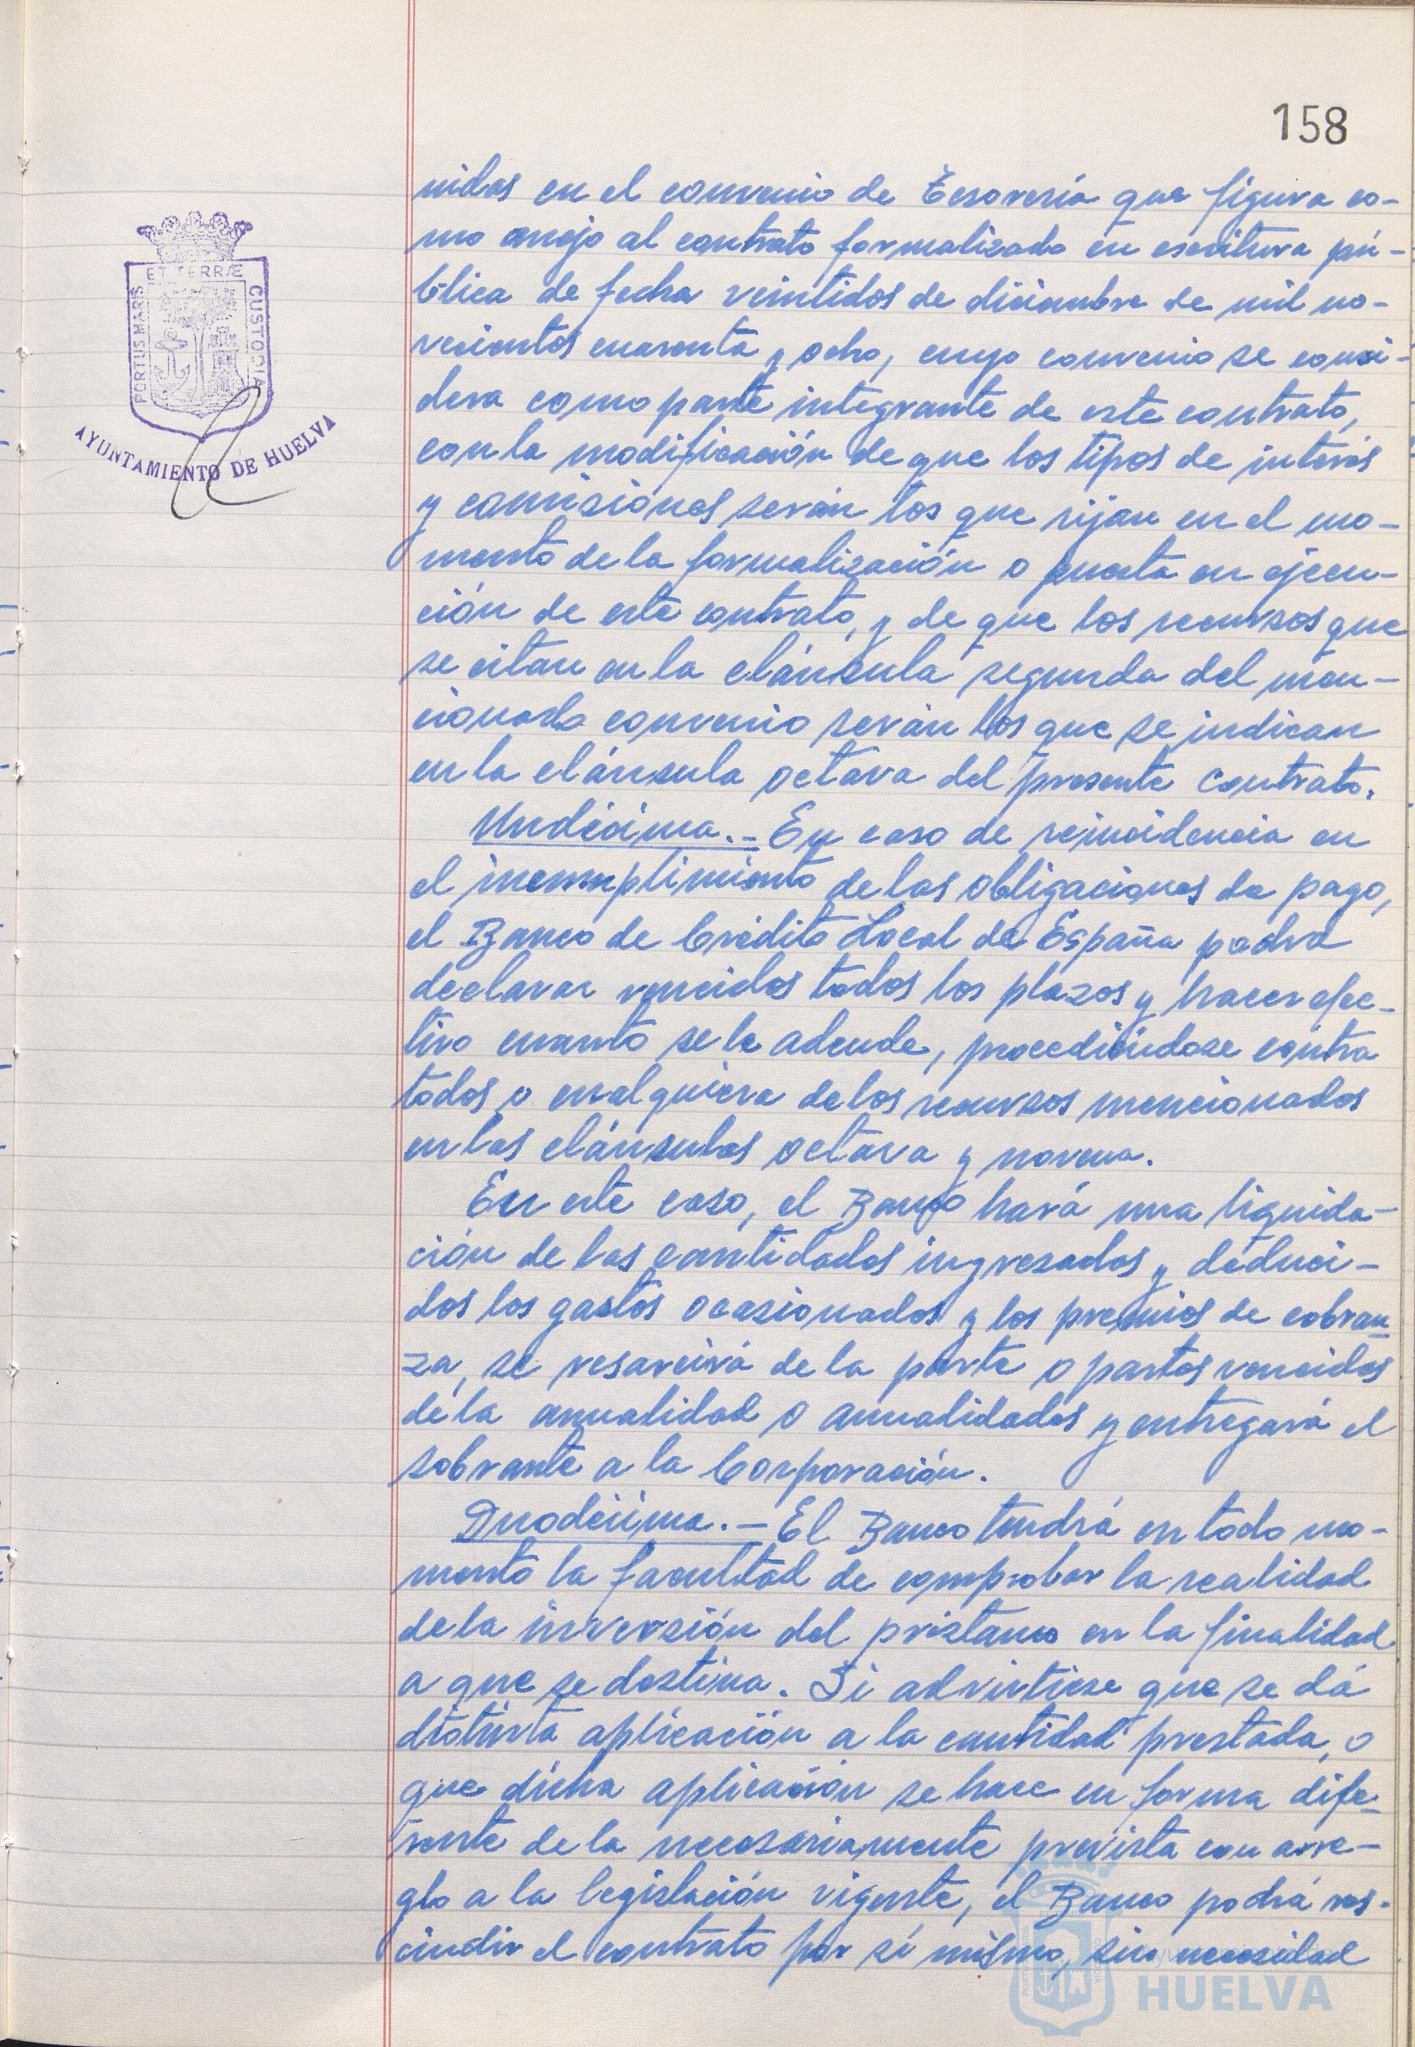 158
nidas en el convenio de Tesorería que figura co-
mo anejo al contrato formalizado en escritura pú-
blica de fecha veintidos de diciembre de mil no-
vecientos cuarenta y ocho, cuyo convenio se consi-
dera como parte integrante de este contrato,
con la modificación de que los tipos de interés
y comisiones serán los que rijan en el mo-
mento de la formalización o puesta en ejecu-
ción de este contrato, y de que los recursos que
se citan en la cláusula segunda del men-
cionado convenio serán los que se indican
en la cláusula octava del presente contrato.
Undécima.- En caso de reincidencia en
el incumplimiento de las obligaciones de pago,
el Banco de Crédito Local de España podrá
declarar vencidos todos los plazos y hacer efec-
tivo cuanto se le adeude, procediéndose contra
todos o cualquiera de los recursos mencionados
en las cláusulas octava y novena.
En este caso, el Banco hará una liquida-
ción de las cantidades ingresadas y deduci-
dos los gastos ocasionados y los premios de cobran-
za, se resarcirá de la parte o partes vencidas
de la anualidad o anualidades y entregará el
sobrante a la Corporación.
Duodécima.- El Banco tendrá en todo mo-
mento la facultad de comprobar la realidad
de la inversión del préstamo en la finalidad
a que se destina. Si advirtiese que se dá
distinta aplicación a la cantidad prestada, o
que dicha aplicación se hace en forma dife-
rente de la necesariamente prevista con arre-
glo a la legislación vigente, el Banco podrá res-
cindir el contrato por sí mismo, sin necesidad
PORTUS MARIS
ET TERRÆ
CUSTODIA
AYUNTAMIENTO DE HUELVA
HUELVA